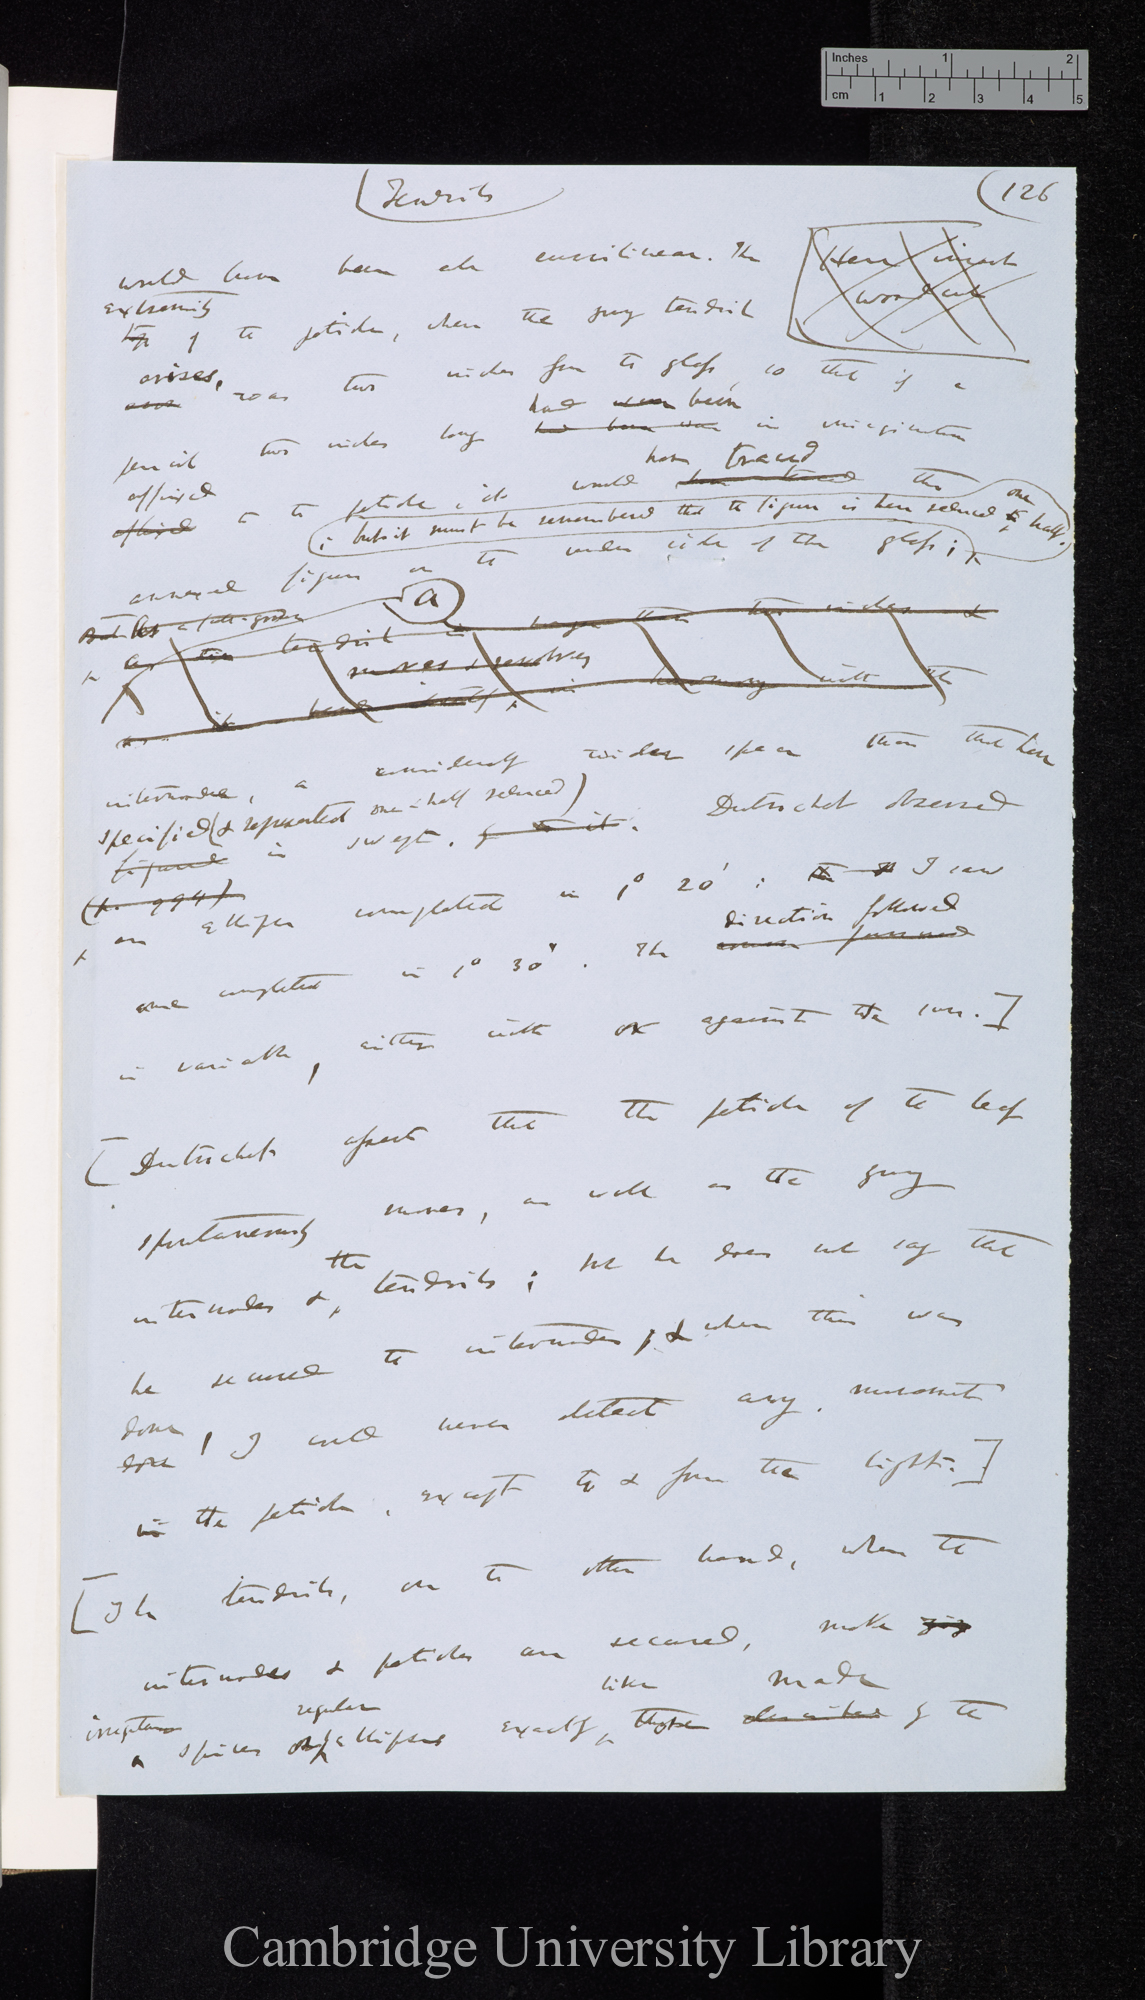 Inches 1 2
cm 1 2 3 4 5
Tendrils
(126
would have been also curvilinear. The
Here insert
wood cut
extremity
tip of the petiole, where the young tendril
arises,
was two inches from the glass, so that if a
had been
pencil two inches long in imagination
have traced
affixed
affixed to the petiole, it would the
; but it must be remembered that the figure is here reduced to one half.
annexed figure on the under side of the glass;
(a)
tendril is longer than two inches &
moves & revolves
itself, in harmony with the
internodes, a considerably wider space than that here
specified (& represented one-half reduced)
figure is swept. Dutrochet observed
(p. 994)
an ellipse completed in 1° 20' : I saw
direction followed
one completed in 1° 30'. The course pursued
is variable, either with or against the sun.]
[Dutrochet asserts that the petiole of the leaf
spontaneously moves, as well as the young
the
internodes & tendrils; but he does not say that
he secured the internodes; & when this was
done
done, I could never detect any movement
in the petiole, except to & from the light.]
[The tendrils, on the other hand, when the
internodes & petioles are secured, make
irregular regular like made
spires or ellipses exactly those described by the
Cambridge University Library